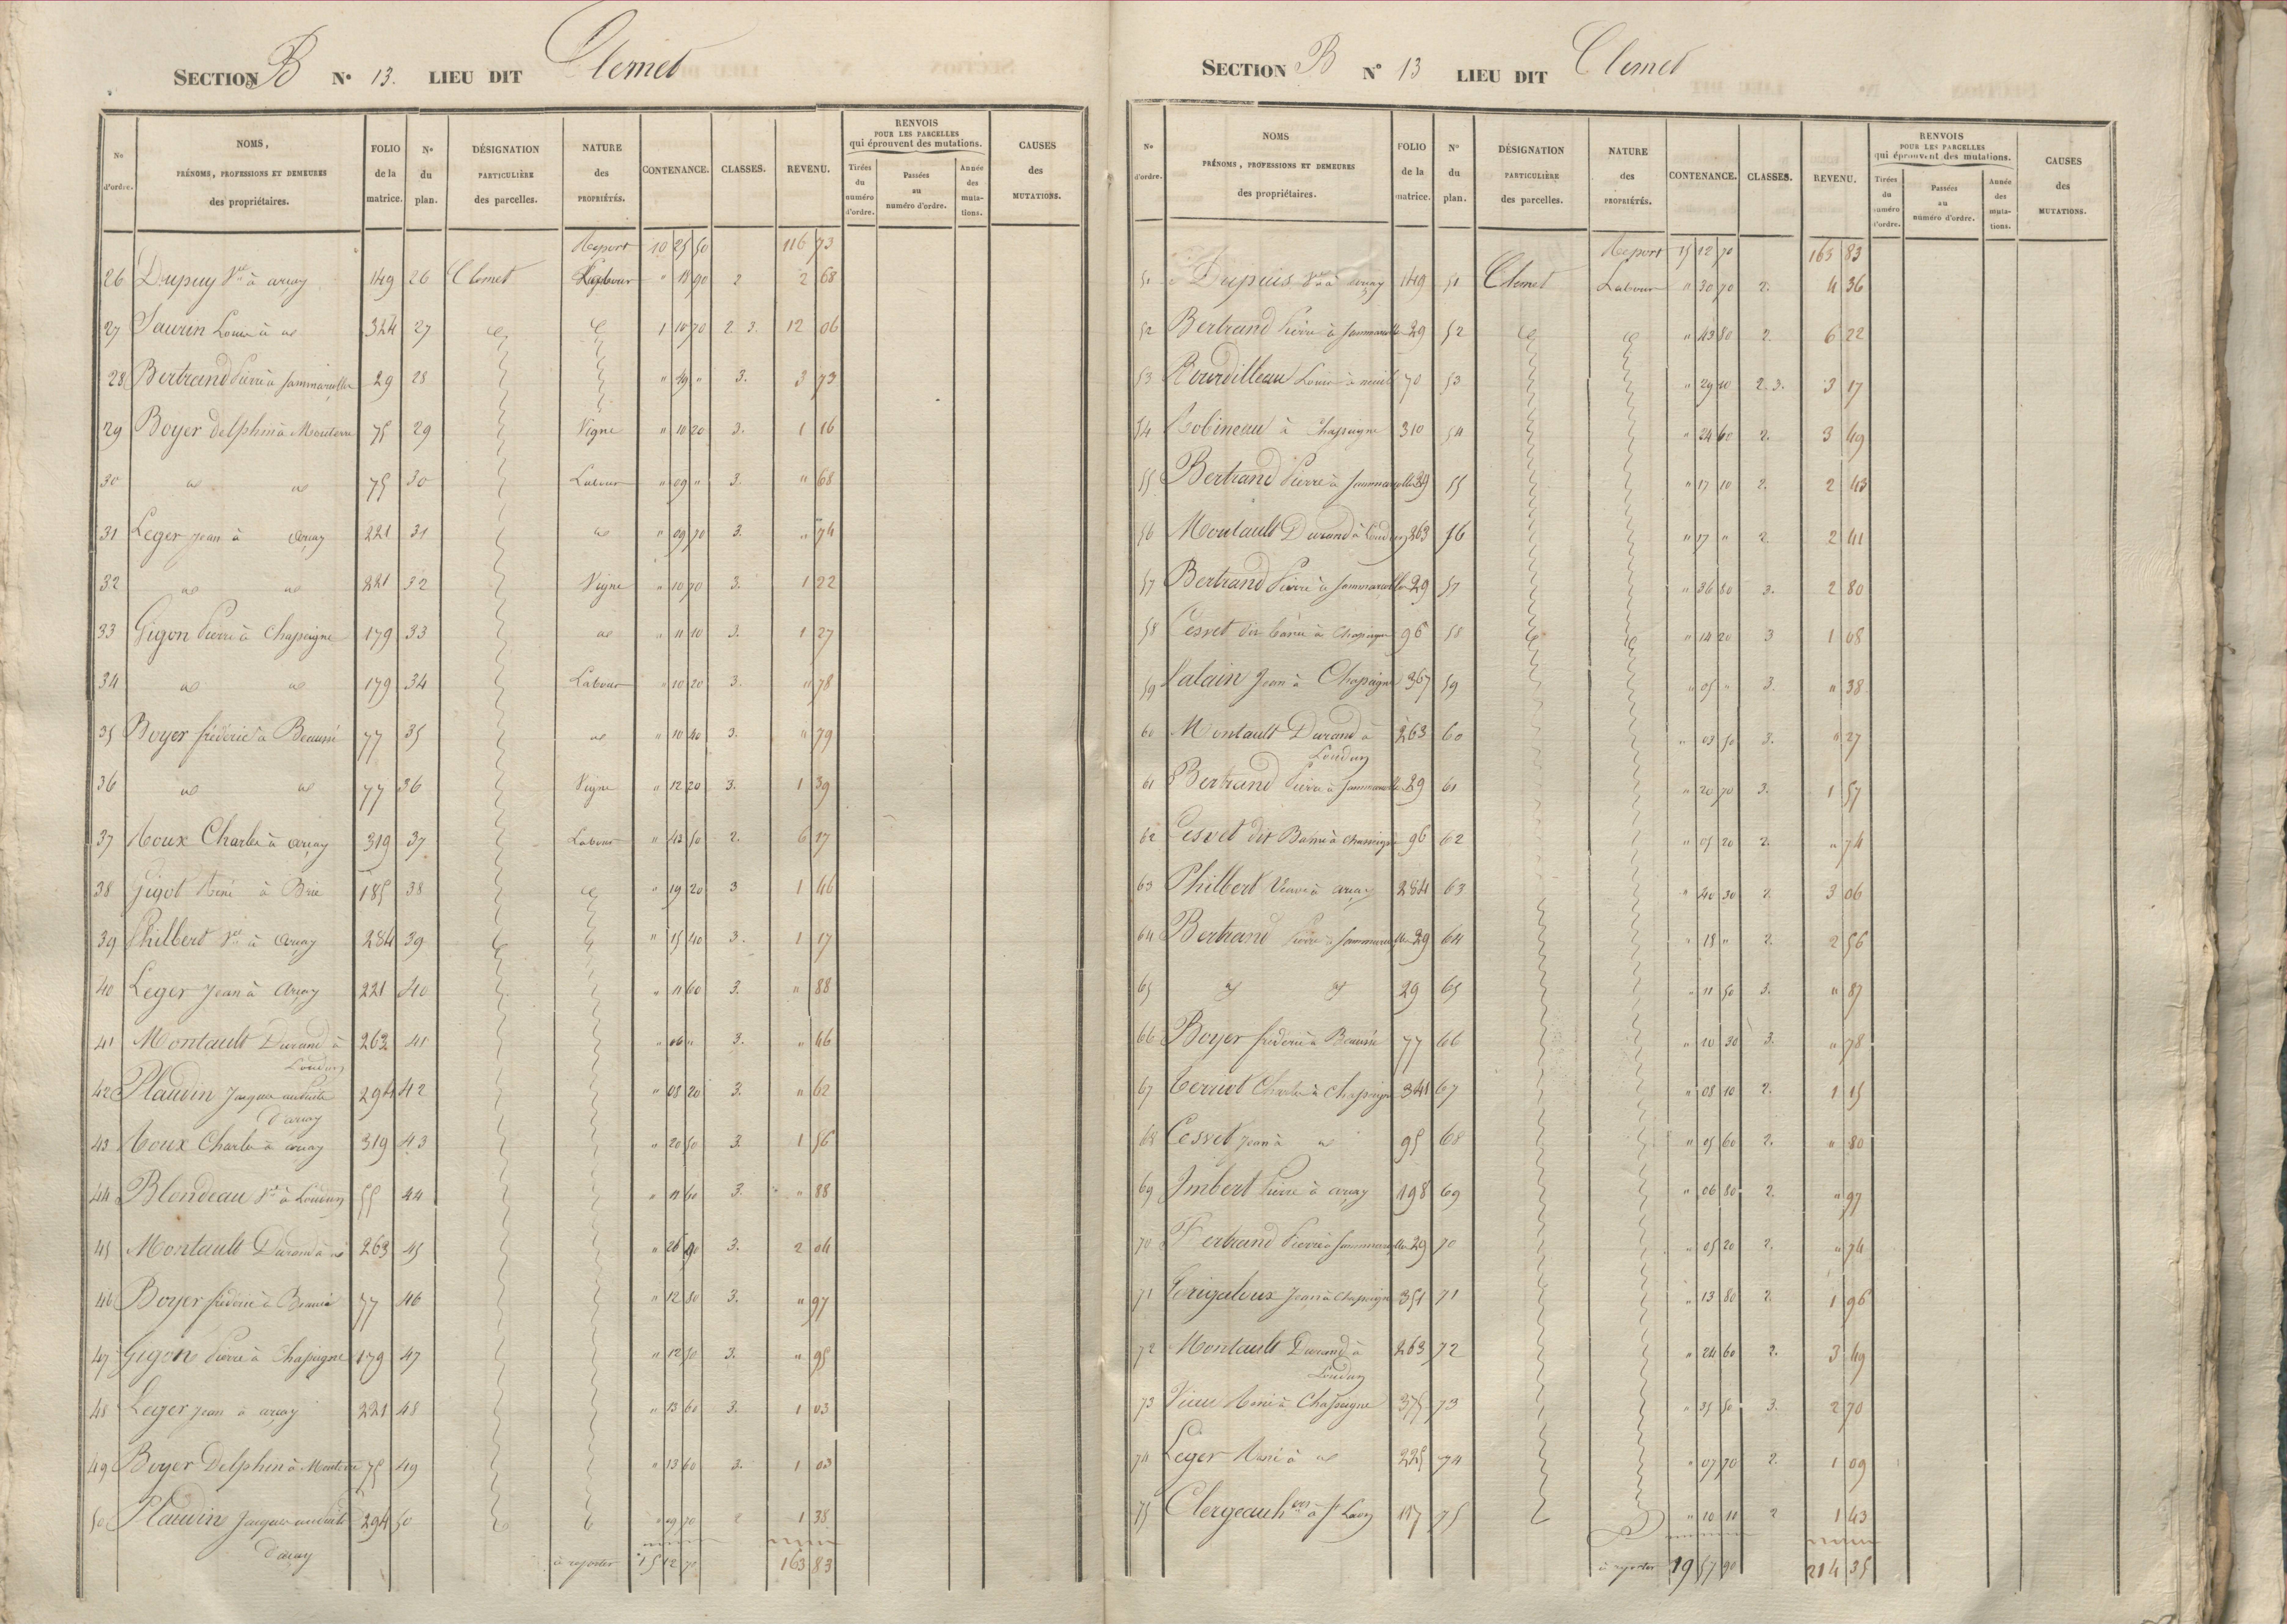 SECTION B N° 13. LIEU DIT Clemet
N° d'ordre. NOMS, PRÉNOMS, PROFESSIONS ET DEMEURES des propriétaires. FOLIO de la matrice. N° du plan. DÉSIGNATION PARTICULIÈRE des parcelles. NATURE des PROPRIÉTÉS. CONTENANCE. CLASSES. REVENU. RENVOIS POUR LES PARCELLES qui éprouvent des mutations. Tirées du numéro d'ordre. Passées au numéro d'ordre. Année des mutations. CAUSES des MUTATIONS.
Report 10 25 50 116 73
26 Dupuy Ve à arçay 149 26 Clemet Labour " 18 90 2 2 68
27 Saurin Louis à id 324 27 id id 1 10 70 2. 3. 12 06
28 Bertrand Pierre à Sammarcolle 29 28 " 49 " 3. 3 73
29 Boyer Delphin à Mouterre 75 29 Vigne " 10 20 3. 1 16
30 id id 75 30 Labour " 09 " 3. " 68
31 Leger Jean à arçay 221 31 id " 09 70 3. " 74
32 id id 221 32 Vigne " 10 70 3. 1 22
33 Gigon Pierre à Chasseigne 179 33 id " 11 10 3. 1 27
34 id id 179 34 Labour " 10 20 3. " 78
35 Boyer fréderic à Beaussé 77 35 id " 10 40 3. " 79
36 id id 77 36 Vigne " 12 20 3. 1 39
37 Roux Charles à arçay 319 37 Labour " 43 50 2. 6 17
38 Gigot René à Brie 185 38 id " 19 20 3 1 46
39 Philbert Ve à arçay 284 39 id id " 15 40 3. 1 17
40 Leger Jean à Arçay 221 40 " 11 60 3. " 88
41 Montault Durand à 263 41 " 06 " 3. " 46
Loudun
42 Plauvin Jacques 294 42 " 08 20 3. " 62
d'arçay
43 Roux Charles à arçay 319 43 " 20 50 3. 1 56
44 Blondeau Ve à Loudun 55 44 " 11 60 3. " 88
45 Montault Durand à id 263 45 " 26 90 3. 2 04
46 Boyer fréderic à Beaussé 77 46 " 12 80 3. " 97
47 Gigon Pierre à Chasseigne 179 47 " 12 50 3. " 95
48 Leger Jean à arçay 221 48 " 13 60 3. 1 03
49 Boyer Delphin à Mouterre 75 49 " 13 60 3. 1 03
50 Plauvin Jacques 294 50 id id " 09 70 2 1 38
d'arçay
à reporter 15 12 70 163 83
SECTION B N° 13 LIEU DIT Clemet
N° d'ordre. NOMS PRÉNOMS, PROFESSIONS ET DEMEURES des propriétaires. FOLIO de la matrice. N° du plan. DÉSIGNATION PARTICULIÈRE des parcelles. NATURE des PROPRIÉTÉS. CONTENANCE. CLASSES. REVENU. RENVOIS POUR LES PARCELLES qui éprouvent des mutations. Tirées du numéro d'ordre. Passées au numéro d'ordre. Année des mutations. CAUSES des MUTATIONS.
Report 15 12 70 163 83
51 Dupuis Ve à arçay 149 51 Clemet Labour " 30 70 2. 4 36
52 Bertrand Pierre à Sammarcolle 29 52 id id " 43 80 2. 6 22
53 Bourdilleau Louis à neuil 70 53 " 29 10 2. 3. 3 17
54 Robineau à Chasseigne 310 54 " 24 60 2. 3 49
55 Bertrand Pierre à Sammarcolle 29 55 " 17 10 2. 2 43
56 Montault Durand à Loudun 263 56 " 17 " 2. 2 41
57 Bertrand Pierre à Sammarcolle 29 57 " 36 80 3. 2 80
58 Cesvet dit à Chasseigne 96 58 id id " 14 20 3 1 08
59 Valain Jean à Chasseigne 367 59 " 05 " 3. " 38
60 Montault Durand à 263 60 " 03 50 3. " 27
Loudun
61 Bertrand Pierre à Sammarcolle 29 61 " 20 70 3. 1 57
62 Cesvet dit à Chasseigne 96 62 " 05 20 2. " 74
63 Philbert Veuve à arçay 284 63 " 40 30 2. 3 06
64 Bertrand Pierre à Sammarcolle 29 64 " 18 " 2. 2 56
65 id id 29 65 " 11 50 3. " 87
66 Boyer fréderic à Beaussé 77 66 " 10 30 3. " 78
67 Terriot Charles à Chasseigne 341 67 " 08 10 2. 1 15
68 Cesvet Jean à id 95 68 " 05 60 2. " 80
69 Imbert Pierre à arçay 198 69 " 06 80 2. " 97
70 Bertrand Pierre à Sammarcolle 29 70 " 05 20 2. " 74
71 Jean à Chasseigne 351 71 " 13 80 2 1 96
72 Montault Durand à 263 72 " 24 60 2. 3 49
Loudun
73 Vieu René à Chasseigne 375 73 " 35 50 3. 2 70
74 Leger René à id 225 74 " 07 70 2. 1 09
75 Clergeault à St Laon 117 75 " 10 10 2 1 43
à reporter 19 57 90 214 35